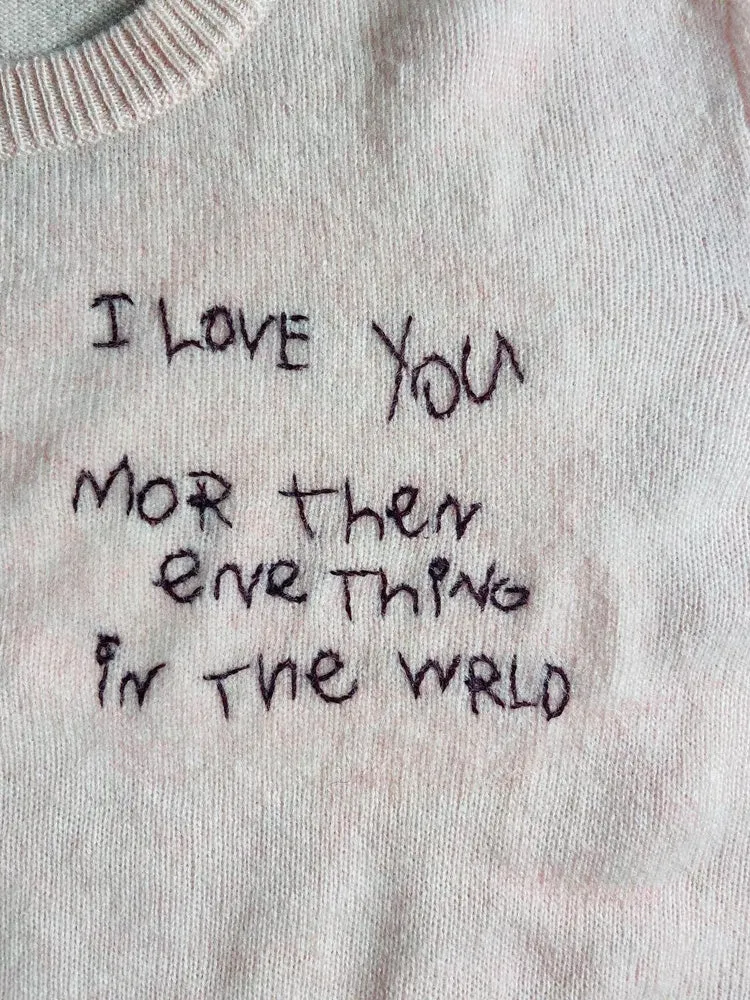 I LOVE YOU
MOR then
eve THiNG
iN THe WRLD